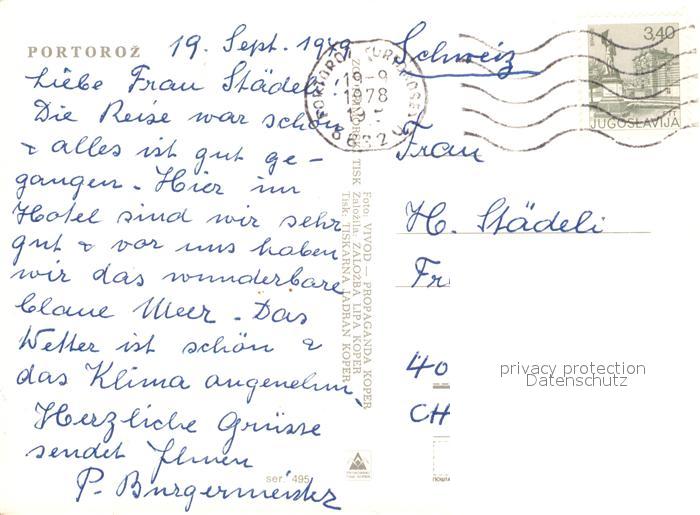 PORTOROŽ
19. Sept. 1979
Liebe Frau Städeli
Die Reise war schön
& alles ist gut ge-
gangen. Hier im
Hotel sind wir sehr
gut & vor uns haben
wir das wunderbare
blaue Meer. Das
Wetter ist schön &
das Klima angenehm.
Herzliche Grüsse
sendet Ihnen
P. Burgermeister
ser. 495
Foto: VIVOD — PROPAGANDA KOPER
Založila: ZALOŽBA LIPA KOPER
Tisk: TISKARNA JADRAN KOPER
19-9
1978
3,40
JUGOSLAVIJA
Schweiz
Frau
H. Städeli
Fr
40
CH
privacy protection
Datenschutz